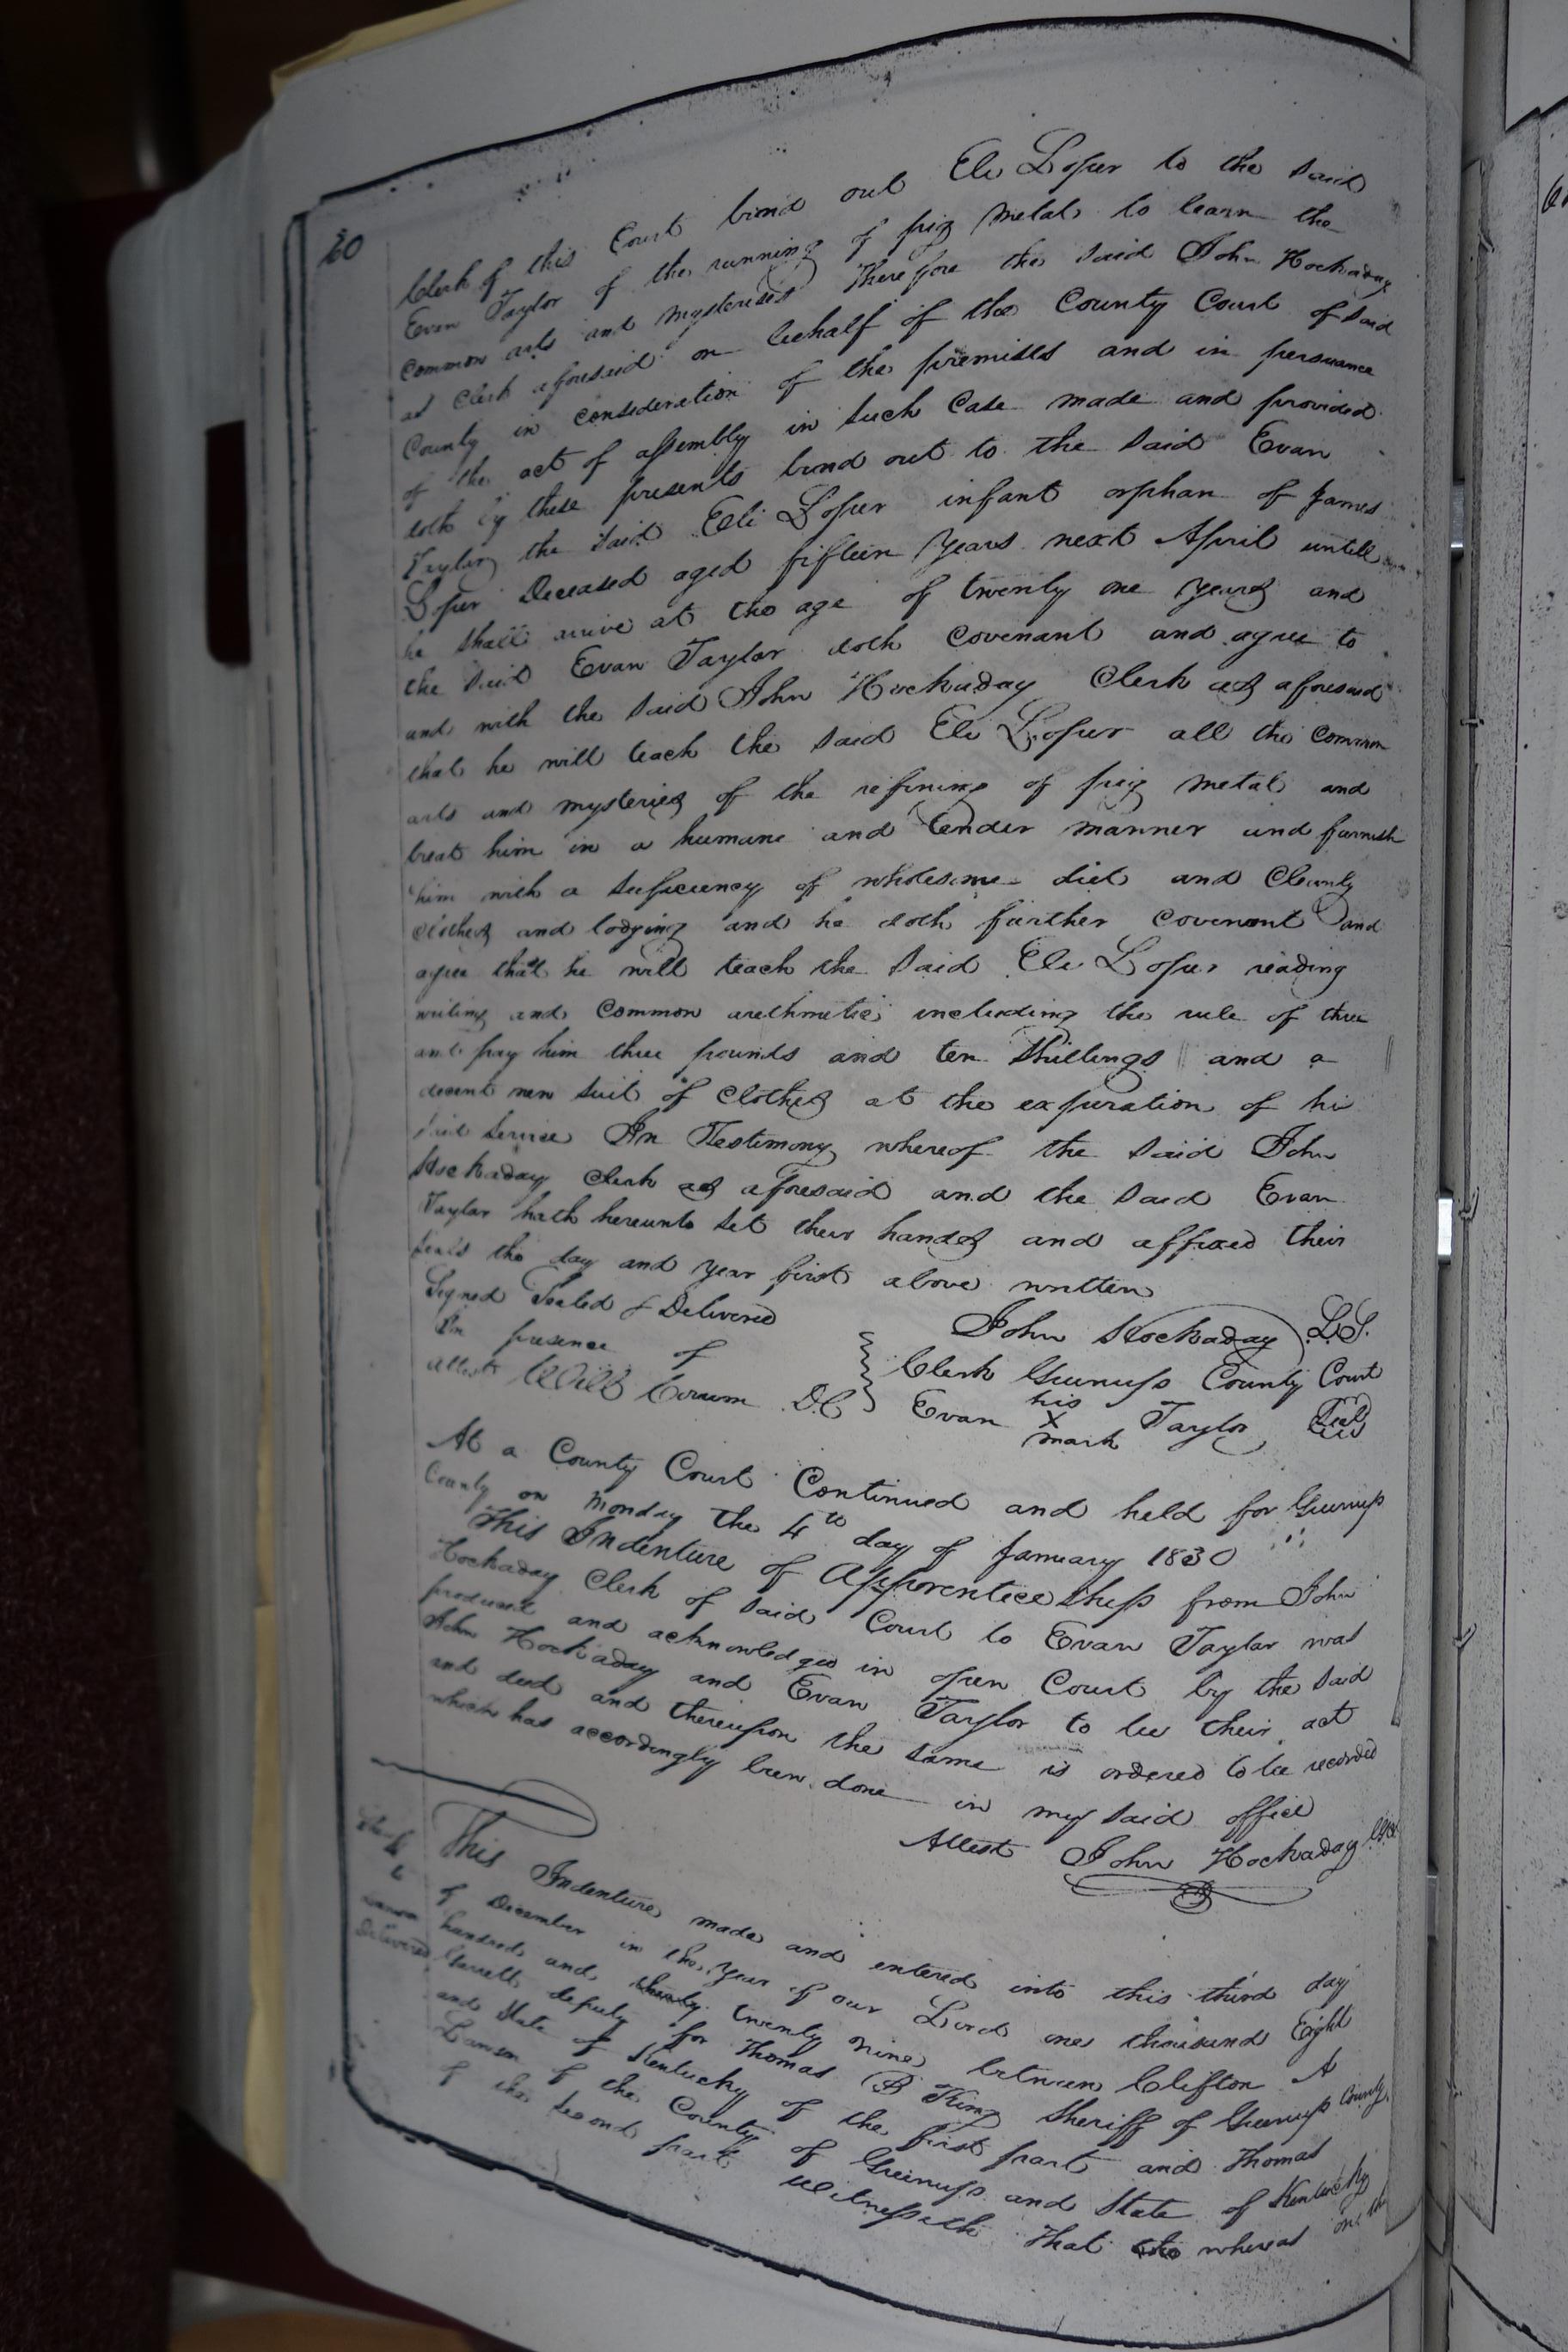 20
Clerk of this Court bind out Eli Loper to the said
Evan Taylor of the running of pig metal to learn the
common arts and mysteries Therefore the said John Hockaday
as Clerk aforesaid on behalf of the County Court of said
County in consideration of the premises and in persuance
of the act of assembly in such Case made and provided
doth by these presents bind out to the said Evan
Taylor the said Eli Loper infant orphan of James
Loper Deceased aged fifteen years next April untill
he shall arrive at the age of twenty one years and
the said Evan Taylor doth covenant and agree to
and with the said John Hockaday Clerk as aforesaid
that he will teach the said Eli Loper all the common
arts and mysteries of the refining of pig metal and
treat him in a humane and tender manner and furnish
him with a suficiency of wholesome diet and Cleanly
clothes and lodging and he doth further covenant and
agree that he will teach the said Eli Loper reading
writing and common arethmetic including the rule of three
and pay him three pounds and ten Shillings and a
decent new suit of clothes at the expiration of his
said service In Testimony whereof the said John
Hockaday Clerk as aforesaid and the said Evan
Taylor hath hereunto set their hands and affixed their
seals the day and year first above written
Signed Sealed & Delivered
In presence of
Attest Will Corum D.C
John Hockaday L.S.
Clerk Greenup County Court
Evan his X mark Taylor Seal
At a County Court Continued and held for Greenup
County on Monday the 4th day of January 1830
This Indenture of Apprenticeship from John
Hockaday Clerk of said Court to Evan Taylor was
produced and acknowledged in open Court by the said
John Hockaday and Evan Taylor to be their act
and deed and thereupon the same is ordered to be recorded
which has accordingly been done in my said office
Attest John Hockaday
Delivered
This Indenture made and entered into this third day
of December in the year of our Lord one thousand Eight
hundred and twenty nine between Clifton A
deputy for Thomas B King Sheriff of Greenup County
and State of Kentucky of the first part and Thomas
Lawson of the County of Greenup and State of Kentucky
of the second part Witnesseth That whereas on the